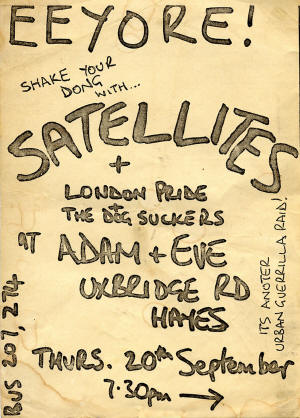 EEYORE!
SHAKE YOUR
DONG
WITH...
SATELLITES
+
LONDON PRIDE
THE DIG SUCKERS
AT ADAM + EVE
UXBRIDGE RD
HAYES
THURS. 20th September
7.30pm →
BUS 207, 274
ITS ANOTER
URBAN GUERRILLA RAID!